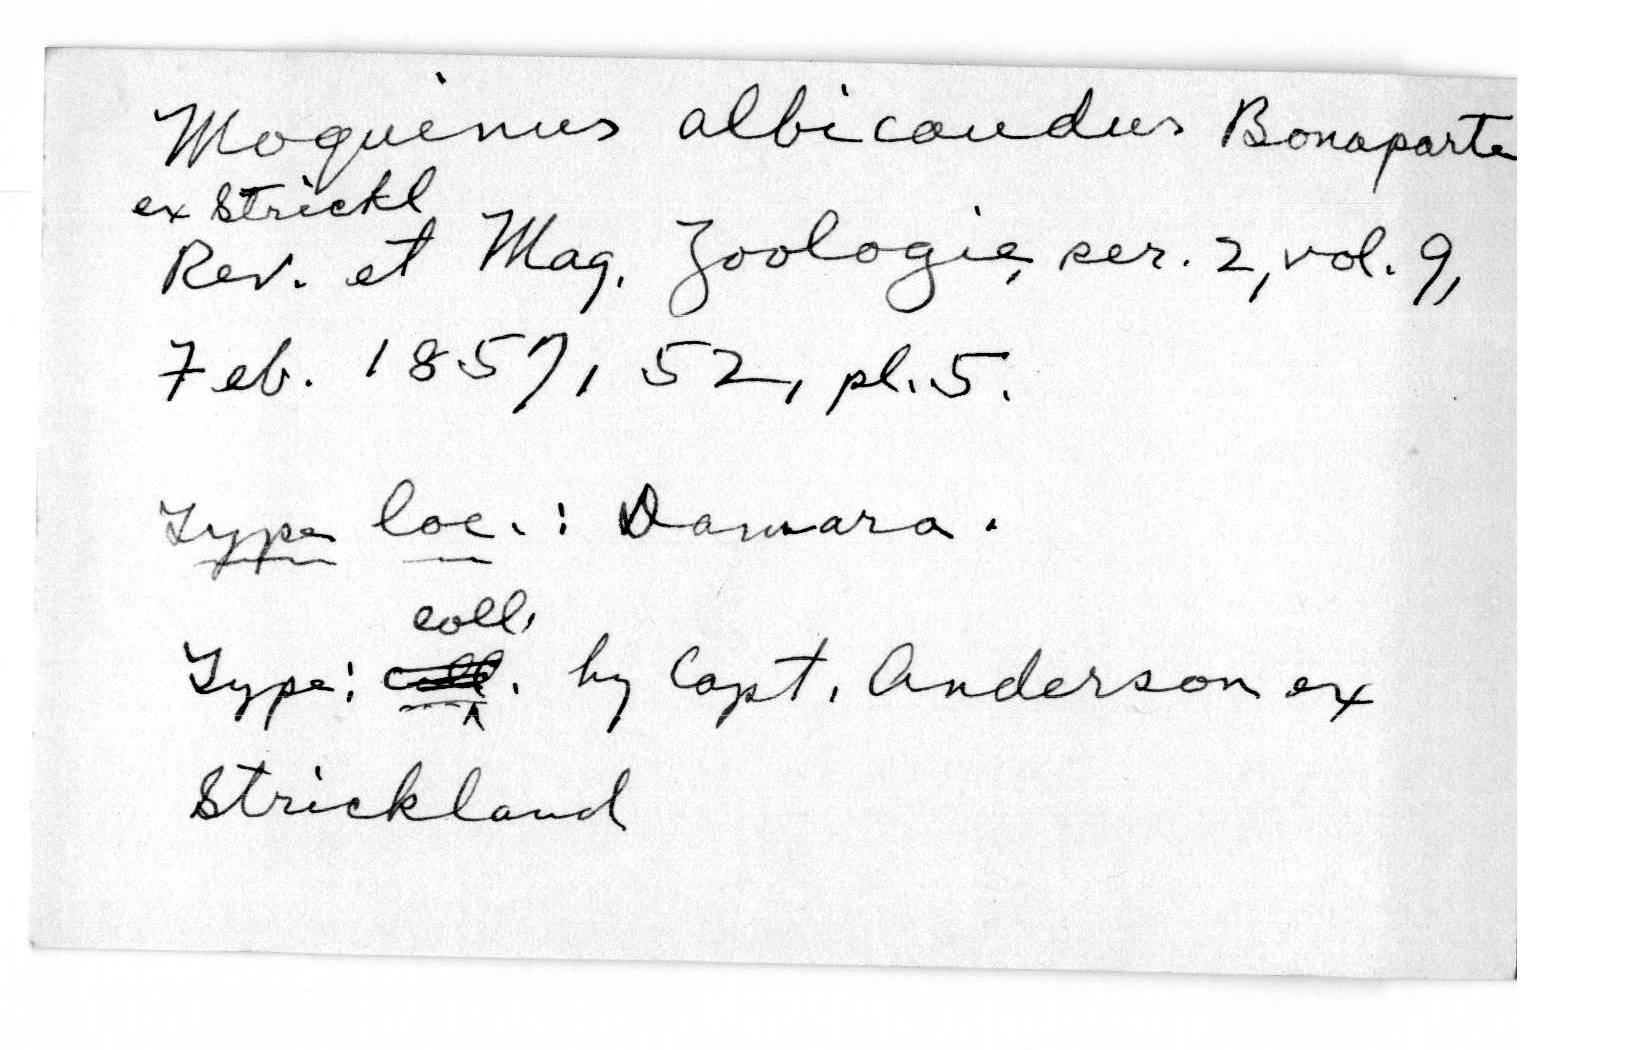 Moquinus albicaudus Bonaparte
ex Strickl
Rev. et Mag. Zoologie, ser. 2, vol. 9,
Feb. 1857, 52, pl. 5.
Type loc.: Damara.
coll.
Type: coll. by Capt. Anderson ex
Strickland